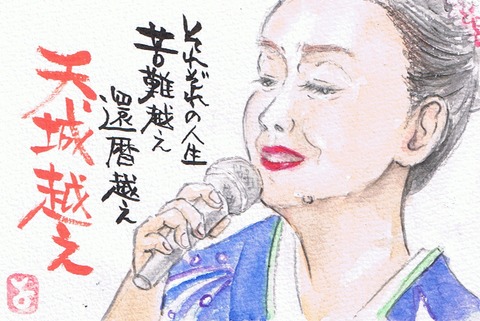 それぞれの人生
苦難越え
還暦越え
天城越え